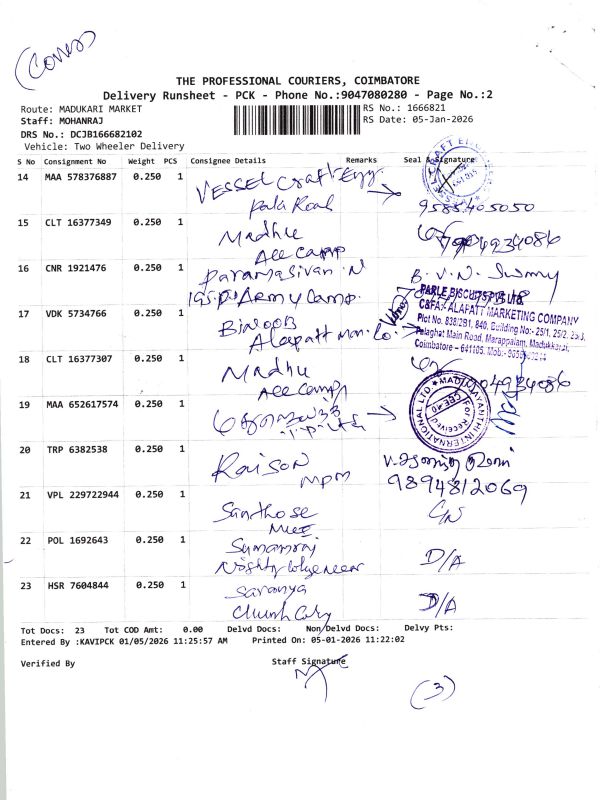 (Cones)
THE PROFESSIONAL COURIERS, COIMBATORE
Delivery Runsheet - PCK - Phone No.:9047080280 - Page No.:2
Route: MADUKARI MARKET
RS No.: 1666821
Staff: MOHANRAJ
RS Date: 05-Jan-2026
DRS No.: DCJB166682102
Vehicle: Two Wheeler Delivery
S No Consignment No Weight PCS Consignee Details Remarks Seal & Signature
14 MAA 578376887 0.250 1 VESSEL Craft Engg
Pala Road 9585405050
15 CLT 16377349 0.250 1 Madhu
Aee Camp 7904934086
16 CNR 1921476 0.250 1 Paramasivan.N B.V.N. Swamy
195 Army Camp.
17 VDK 5734766 0.250 1 Binoob
Alapatt Man. Co.
PARLE BISCUITS PVT LTD
C&FA:- ALAPATT MARKETING COMPANY
Plot No. 838/2B1, 840, Building No:- 25/1, 25/2, 25/3,
Palaghat Main Road, Marappalam, Madukkarai,
Coimbatore - 641105. Mob:-
18 CLT 16377307 0.250 1 Madhu
Aee Camp 7904934086
19 MAA 652617574 0.250 1
INTERNATIONAL LTD.
For Received
CBE
20 TRP 6382538 0.250 1 Raison
mpm 9894812069
21 VPL 229722944 0.250 1 Santhose C/N
22 POL 1692643 0.250 1 Sumanraj D/A
23 HSR 7604844 0.250 1 Saranya D/A
Church Coly
Tot Docs: 23 Tot COD Amt: 0.00 Delvd Docs: Non/Delvd Docs: Delvy Pts:
Entered By :KAVIPCK 01/05/2026 11:25:57 AM Printed On: 05-01-2026 11:22:02
Verified By Staff Signature
(3)